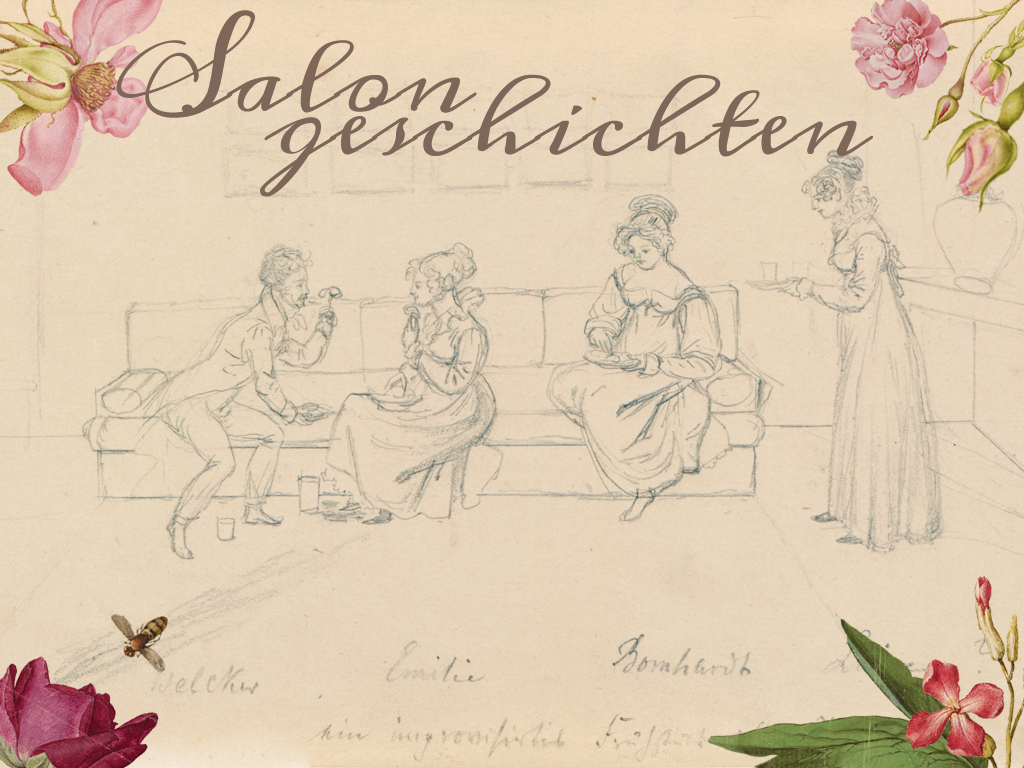 Salon
geschichten
Welcker Emilie Bomhardt
ein improvisirtes